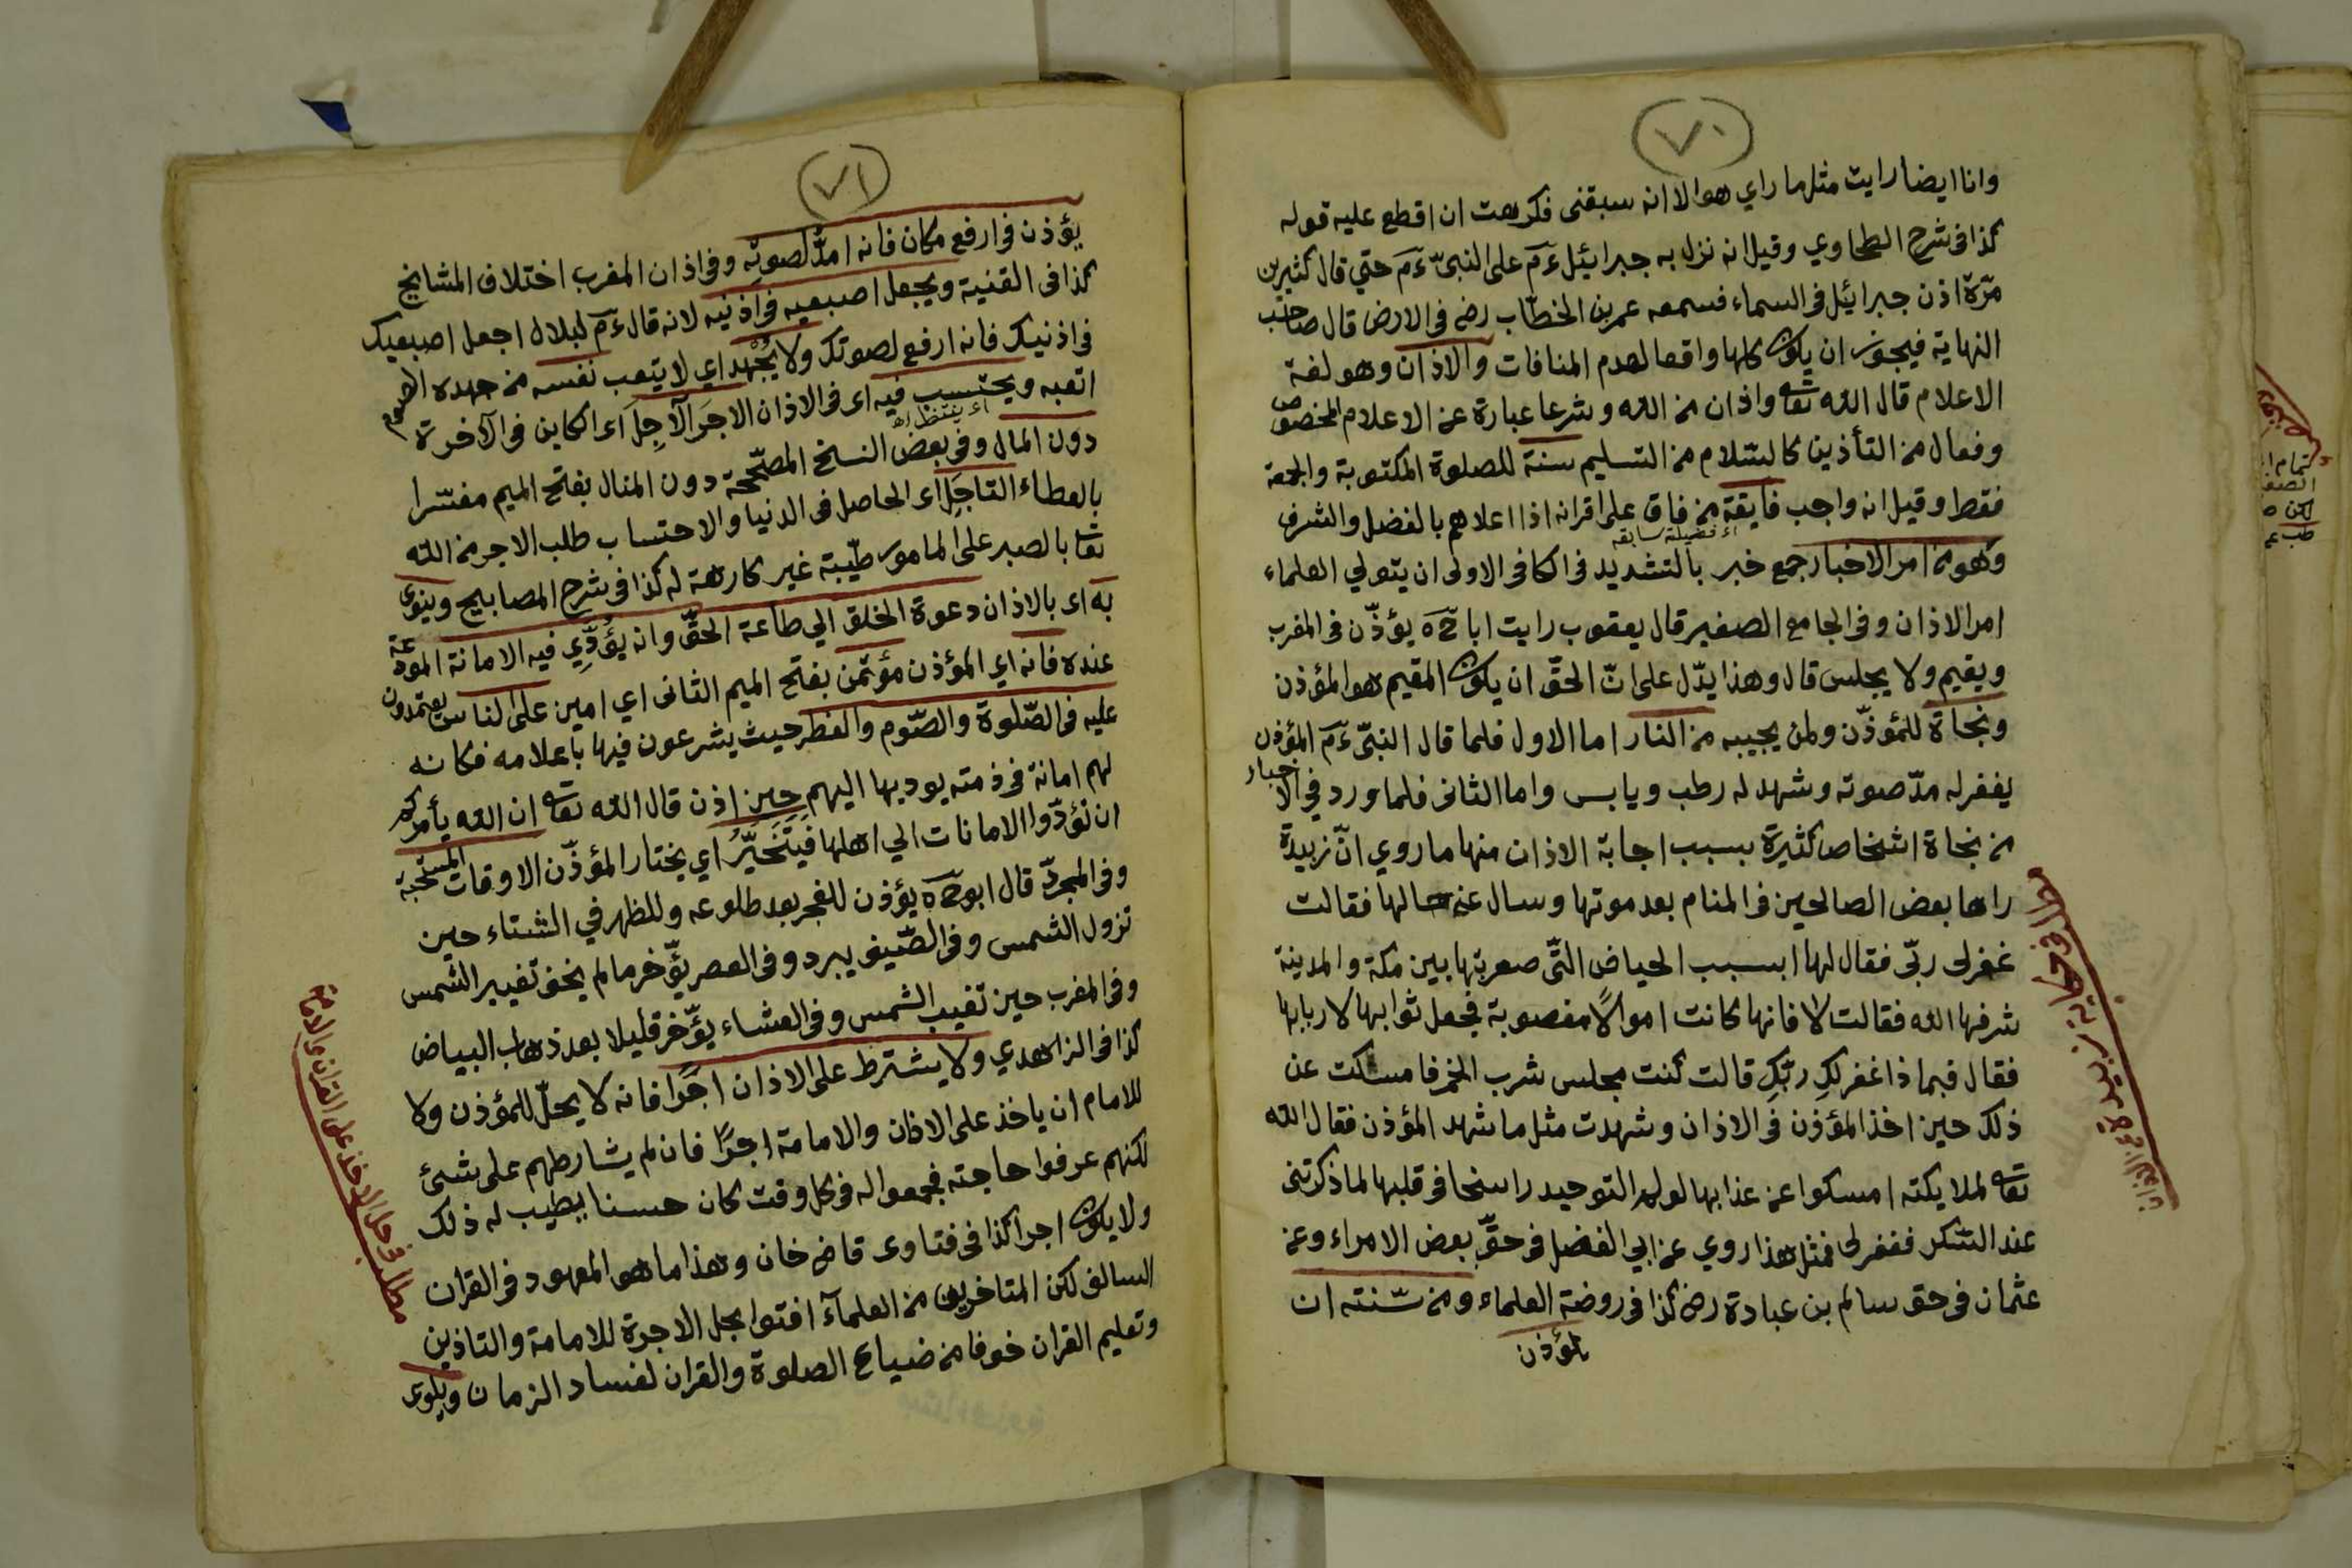 ٧٠
وانا ايضا رايت مثلما راي هو الا انه سبقنى فكرهت ان اقطع عليه قوله
كذا فى شرح الطحاوي وقيل انه نزل به جبرائيل ءم على النبىّ ءم حتي قال كثيرين
مرّة اذن جبرائيل فى السماء فسمعه عمر بن الخطّاب رض فى الارض قال صاحب
النهاية فيجوز ان يكون كلها واقعا لعدم المنافات والاذان وهو لغة
الاعلام قال الله تعا واذان من الله وشرعا عبارة عن الاعلام المخصوص
وفعال من التأذين كالسّلام من التسليم سنة للصلوة المكتوبة والجمعة
فقط وقيل انه واجب فايقة من فاق على اقرانه اذا اعلاهم بالفضل والشرف
اى فضيلة سابقه
وهو من امر الاخبار جمع خبر بالتشديد فى الكافى الاولى ان يتولي العلماء
امر الاذان وفى الجامع الصغير قال يعقوب رايت ابا ح ه يؤذّن فى المغرب
ويقيم ولا يجلس قال وهذا يدّل على انّ الحقّ ان يكون المقيم هو المؤذن
ونجاة للمؤذّن ولمن يجيبه من النار اما الاول فلما قال النبىّ ءم المؤذن
يغفر له مدّ صوته وشهد له رطب ويابس واما الثانى فلما ورد في الاخبار
من نجاة اشخاص كثيرة بسبب اجابة الاذان منها ما روي انّ زبيدة
راها بعض الصالحين فى المنام بعد موتها وسال عن حالها فقالت
غفر لى ربّى فقال لها ابسبب الحياض التّى صعربتها بين مكة والمدينة
شرفها الله فقالت لا فانها كانت اموالًا مغصوبة فجعل ثوابها لاربابها
فقال فبما ذا غفر لكِ ربّكِ قالت كنت مجلس شرب الخمر فامسكت عن
ذلك حين اخذ المؤذن فى الاذان وشهدت مثل ما شهد المؤذن فقال الله
تعا لملايكته امسكوا عن عذابها لولم التوحيد راسخا فى قلبها لما ذكرتنى
عند السّكر فغفر لى فمثل هذا روي عن ابي الفضل فى حقّ بعض الامراء وعن
عثمان فى حق سالم بن عبادة رض كذا فى روضة العلماء ومن سّنته ان
يؤذن
٧١
يؤذن فى ارفع مكان فانه امدّ لصوته وفى اذان المغرب اختلاف المشايخ
كذا فى القنية ويجعل اصبعيه فى اذنيه لانه قال ءم لبلال اجعل اصبعيك
فى اذنيك فانه ارفع لصوتك ولا يُجْهِد اي لا يتعب نفسه من جهده اذا
اتعبه ويحتسب فيه اى فى الاذان الاجرَ الآجِلَ اى الكاين فى الآخرة
اى ينتظر اه
دون المال وفى بعض النسخ المصّححة دون المنال بفتح الميم مفسّرا
بالعطاء القاجَلِ اى الحاصل فى الدنيا والاحتساب طلب الاجر من الله
تعا بالصبر على المامور طيّبة غير كارهة له كذا فى شرح المصابيح وينوى
به اى بالاذان دعوة الخلق الي طاعة الحقّ وانه يؤدّي فيه الامانة المودعة
عنده فانه اي المؤذن مؤتمن بفتح الميم الثانى اي امين على الناس يعتمدون
عليه فى الصّلوة والصّوم والفطر حيث يشرعون فيها باعلامه فكانه
لهم امانة فى ذمته يوديها اليهم حين اذن قال الله تعا ان الله يأمركم
ان تؤدّوا الامانات الي اهلها فيَتَخَيَّرُ اي يختار المؤذّن الاوقات المستحبة
وفى المجردّ قال ابو ح ه يؤذن للفجر بعد طلوعه وللظهر في الشتاء حين
تزول الشمس وفى الصّيف يبرد وفى العصر يؤّخر ما لم يخف تغيير الشمس
وفى المغرب حين تغيب الشمس وفى العشاء يؤّخر قليلا بعد ذهاب البياض
كذا فى الزاهدي ولا يشترط على الاذان اجرًا فانه لا يحلّ للمؤذن ولا
للامام ان ياخذ على الاذان والامامة اجرًا فان لم يشارطهم على شئ
لكنهم عرفوا حاجته فجمعوا له فى كل وقت كان حسنا يطيب له ذلك
ولا يكون اجرا كذا فى فتاوى قاضى خان وهذا ما هو المعهود فى القران
السالف لكن المتاخرين من العلمآء افتوا بحل الاجرة للامامة والتاذين
وتعليم القران خوفا من ضياع الصلوة والقران لفساد الزمان ويلوى
مطلب فى حل الاخذ على القران والامامة